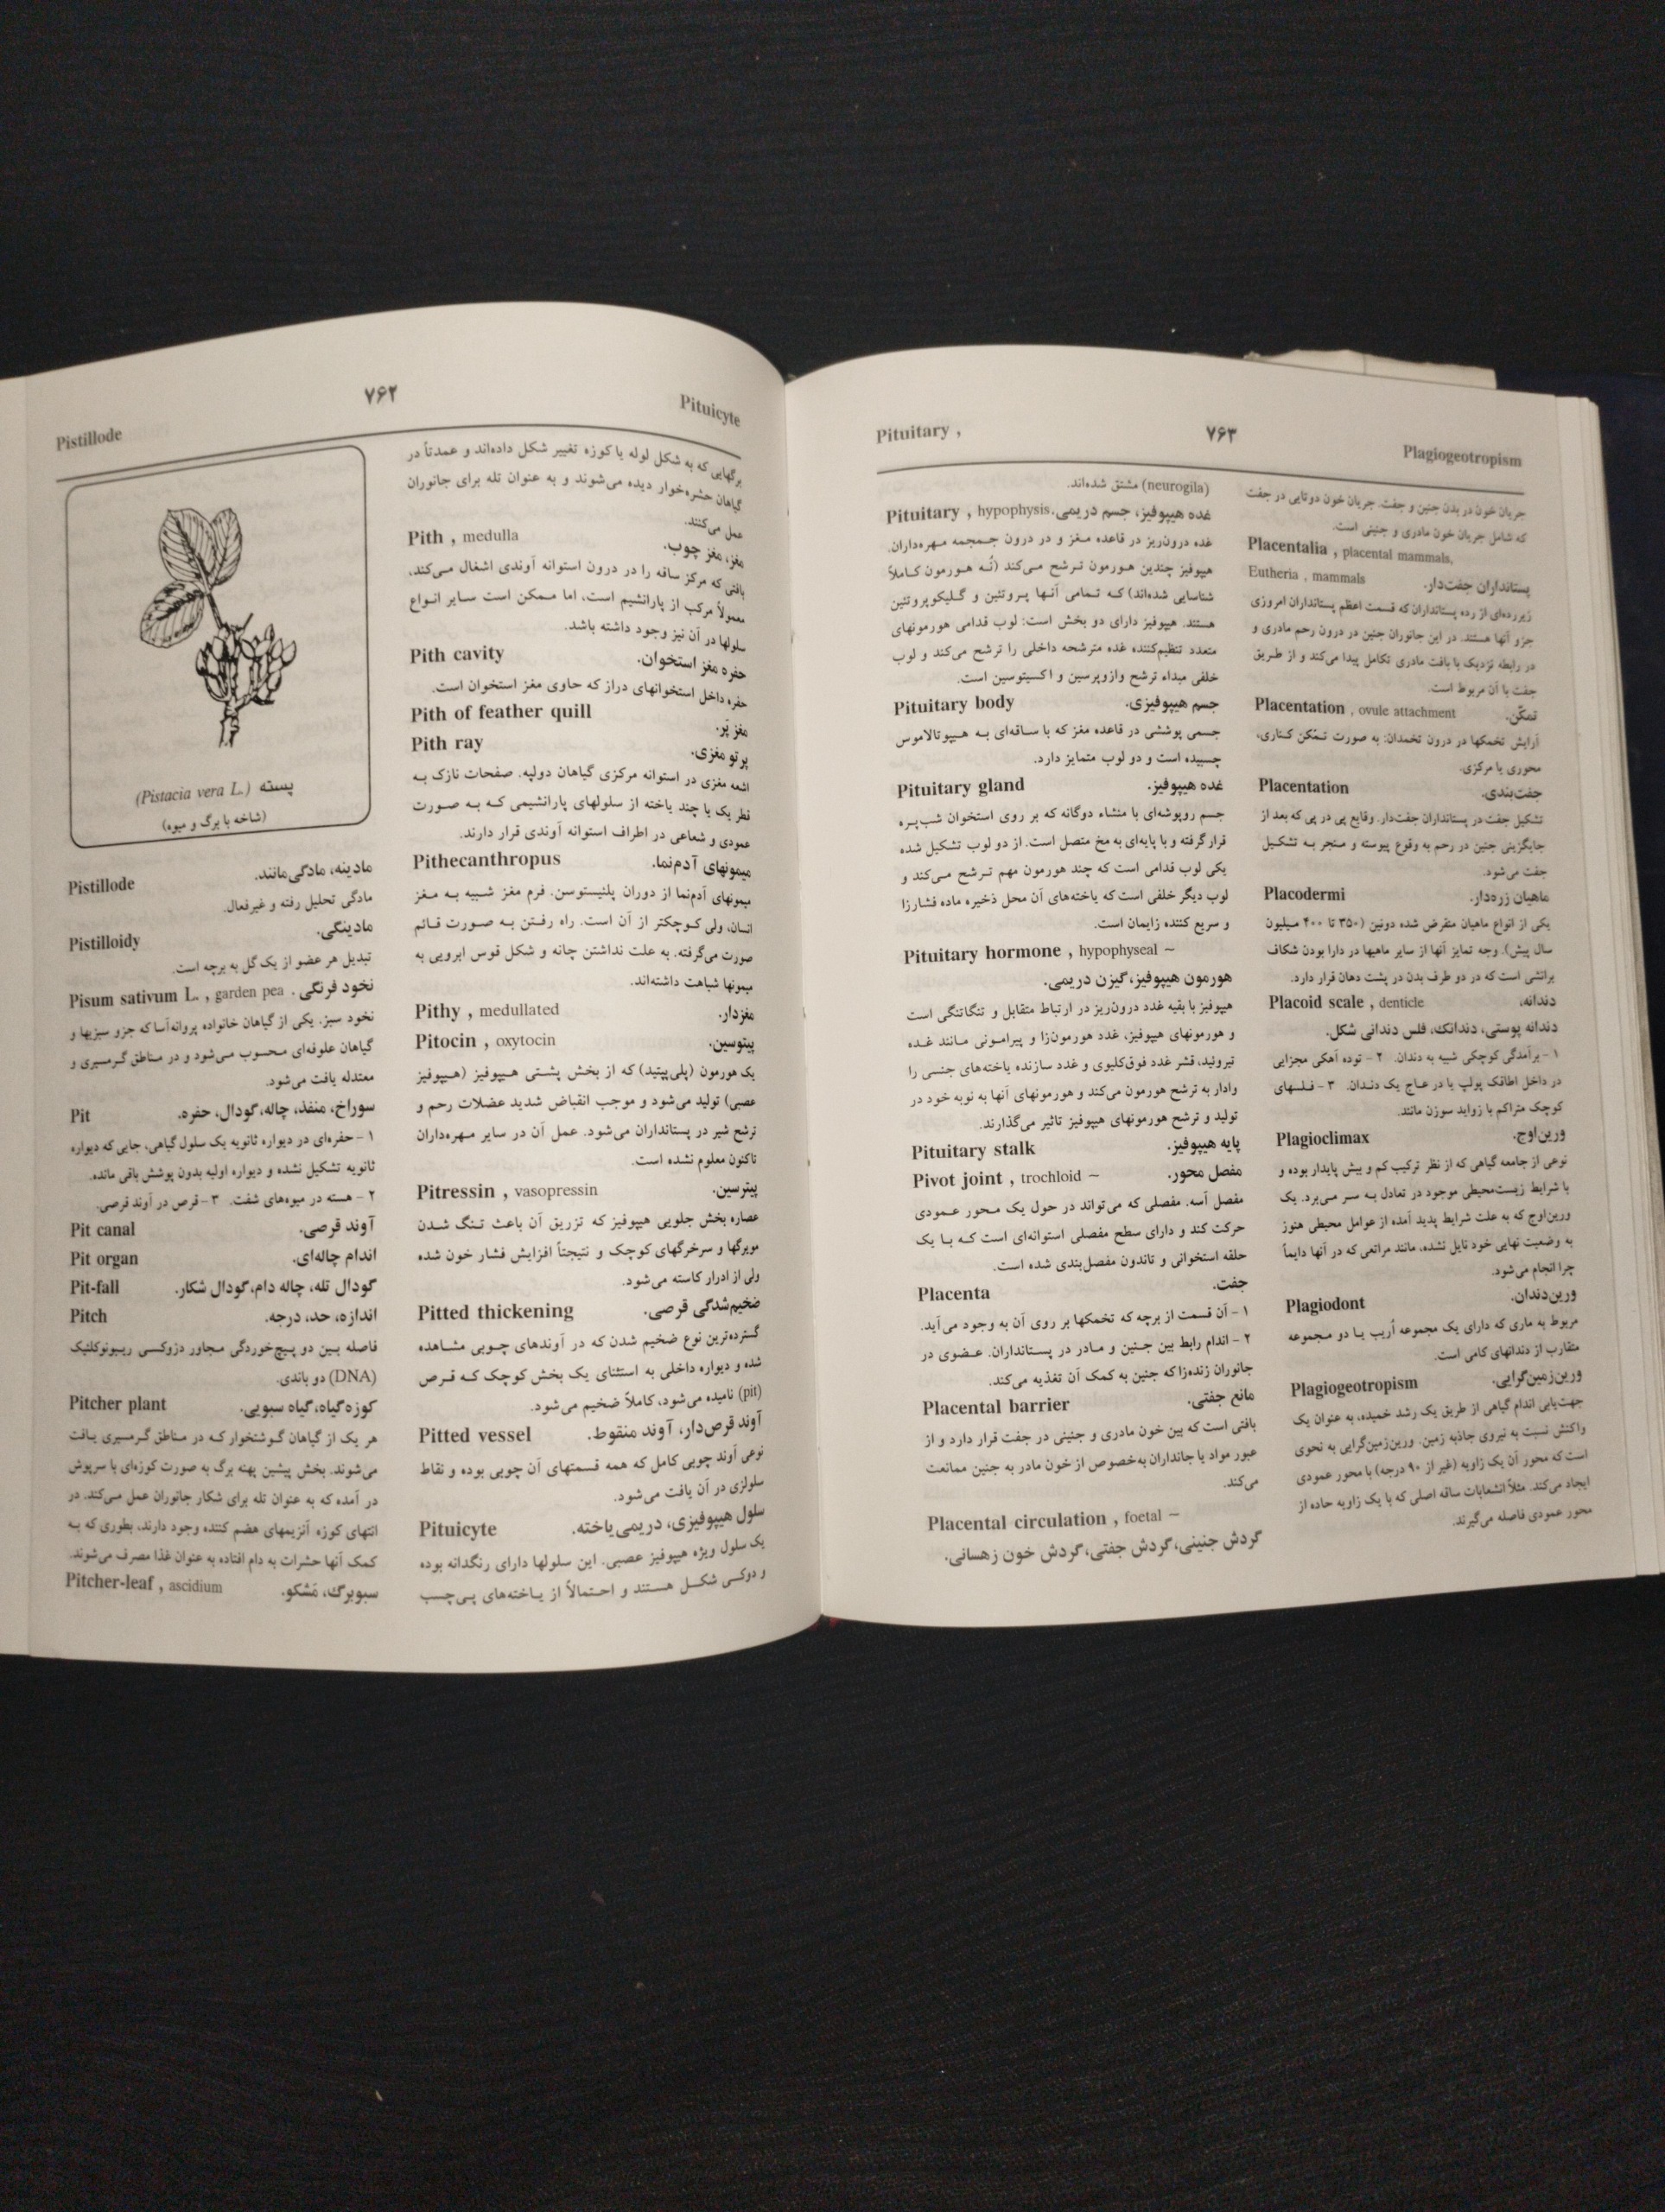 Pistillode ۷۶۲ Pituicyte
پسته (Pistacia vera L.)
(شاخه با برگ و میوه)
Pistillode مادینه، مادگی‌مانند.
مادگی تحلیل رفته و غیرفعال.
Pistilloidy مادینگی.
تبدیل هر عضو از یک گل به برچه است.
Pisum sativum L. , garden pea . نخود فرنگی
نخود سبز. یکی از گیاهان خانواده پروانه‌آسا که جزو سبزیها و
گیاهان علوفه‌ای محسوب می‌شود و در مناطق گرمسیری و
معتدله یافت می‌شود.
Pit سوراخ، منفذ، چاله، گودال، حفره.
۱ - حفره‌ای در دیواره ثانویه یک سلول گیاهی، جایی که دیواره
ثانویه تشکیل نشده و دیواره اولیه بدون پوشش باقی مانده.
۲ - هسته در میوه‌های شفت. ۳ - قرص در آوند قرصی.
Pit canal آوند قرصی.
Pit organ اندام چاله‌ای.
Pit-fall گودال تله، چاله دام، گودال شکار.
Pitch اندازه، حد، درجه.
فاصله بین دو پیچ‌خوردگی مجاور دزوکسی ریبونوکلئیک
(DNA) دو باندی.
Pitcher plant کوزه گیاه، گیاه سبویی.
هر یک از گیاهان گوشتخوار که در مناطق گرمسیری یافت
می‌شوند. بخش پیشین پهنه برگ به صورت کوزه‌ای با سرپوش
در آمده که به عنوان تله برای شکار جانوران عمل می‌کند. در
انتهای کوزه آنزیمهای هضم کننده وجود دارند، بطوری که به
کمک آنها حشرات به دام افتاده به عنوان غذا مصرف می‌شوند.
Pitcher-leaf , ascidium سبوبرگ، مَشکو.
برگهایی که به شکل لوله یا کوزه تغییر شکل داده‌اند و عمدتاً در
گیاهان حشره‌خوار دیده می‌شوند و به عنوان تله برای جانوران
عمل می‌کنند.
Pith , medulla مغز، مغز چوب.
بافتی که مرکز ساقه را در درون استوانه آوندی اشغال می‌کند،
معمولاً مرکب از پارانشیم است، اما ممکن است سایر انواع
سلولها در آن نیز وجود داشته باشد.
Pith cavity حفره مغز استخوان.
حفره داخل استخوانهای دراز که حاوی مغز استخوان است.
Pith of feather quill مغز پَر.
Pith ray پرتو مغزی.
اشعه مغزی در استوانه مرکزی گیاهان دولپه. صفحات نازک به
قطر یک یا چند یاخته از سلولهای پارانشیمی که به صورت
عمودی و شعاعی در اطراف استوانه آوندی قرار دارند.
Pithecanthropus میمونهای آدم‌نما.
میمونهای آدم‌نما از دوران پلئیستوسن. فرم مغز شبیه به مغز
انسان، ولی کوچکتر از آن است. راه رفتن به صورت قائم
صورت می‌گرفته. به علت نداشتن چانه و شکل قوس ابرویی به
میمونها شباهت داشته‌اند.
Pithy , medullated مغزدار.
Pitocin , oxytocin پیتوسین.
یک هورمون (پلی‌پپتید) که از بخش پشتی هیپوفیز (هیپوفیز
عصبی) تولید می‌شود و موجب انقباض شدید عضلات رحم و
ترشح شیر در پستانداران می‌شود. عمل آن در سایر مهره‌داران
تاکنون معلوم نشده است.
Pitressin , vasopressin پیترسین.
عصاره بخش جلویی هیپوفیز که تزریق آن باعث تنگ شدن
مویرگها و سرخرگهای کوچک و نتیجتاً افزایش فشار خون شده
ولی از ادرار کاسته می‌شود.
Pitted thickening ضخیم‌شدگی قرصی.
گسترده‌ترین نوع ضخیم شدن که در آوندهای چوبی مشاهده
شده و دیواره داخلی به استثنای یک بخش کوچک که قرص
(pit) نامیده می‌شود، کاملاً ضخیم می‌شود.
Pitted vessel آوند قرص‌دار، آوند منقوط.
نوعی آوند چوبی کامل که همه قسمتهای آن چوبی بوده و نقاط
سلولزی در آن یافت می‌شود.
Pituicyte سلول هیپوفیزی، دریمی‌یاخته.
یک سلول ویژه هیپوفیز عصبی. این سلولها دارای رنگدانه بوده
و دوکی شکل هستند و احتمالاً از یاخته‌های پی‌چسب
Pituitary , ۷۶۳ Plagiogeotropism
(neurogila) مشتق شده‌اند.
Pituitary , hypophysis. غده هیپوفیز، جسم دریمی
غده درون‌ریز در قاعده مغز و در درون جمجمه مهره‌داران.
هیپوفیز چندین هورمون ترشح می‌کند (نُه هورمون کاملاً
شناسایی شده‌اند) که تمامی آنها پروتئین و گلیکوپروتئین
هستند. هیپوفیز دارای دو بخش است: لوب قدامی هورمونهای
متعدد تنظیم‌کننده غده مترشحه داخلی را ترشح می‌کند و لوب
خلفی مبداء ترشح وازوپرسین و اکسیتوسین است.
Pituitary body جسم هیپوفیزی.
جسمی پوششی در قاعده مغز که با ساقه‌ای به هیپوتالاموس
چسبیده است و دو لوب متمایز دارد.
Pituitary gland غده هیپوفیز.
جسم روپوشه‌ای با منشاء دوگانه که بر روی استخوان شب‌پره
قرار گرفته و با پایه‌ای به مخ متصل است. از دو لوب تشکیل شده
یکی لوب قدامی است که چند هورمون مهم ترشح می‌کند و
لوب دیگر خلفی است که یاخته‌های آن محل ذخیره ماده فشارزا
و سریع کننده زایمان است.
Pituitary hormone , hypophyseal ~
هورمون هیپوفیز، گیزن دریمی.
هیپوفیز با بقیه غدد درون‌ریز در ارتباط متقابل و تنگاتنگی است
و هورمونهای هیپوفیز، غدد هورمون‌زا و پیرامونی مانند غده
تیروئید، قشر غدد فوق‌کلیوی و غدد سازنده یاخته‌های جنسی را
وادار به ترشح هورمون می‌کند و هورمونهای آنها به نوبه خود در
تولید و ترشح هورمونهای هیپوفیز تاثیر می‌گذارند.
Pituitary stalk پایه هیپوفیز.
Pivot joint , trochloid ~ مفصل محور.
مفصل آسه. مفصلی که می‌تواند در حول یک محور عمودی
حرکت کند و دارای سطح مفصلی استوانه‌ای است که با یک
حلقه استخوانی و تاندون مفصل‌بندی شده است.
Placenta جفت.
۱ - آن قسمت از برچه که تخمکها بر روی آن به وجود می‌آید.
۲ - اندام رابط بین جنین و مادر در پستانداران. عضوی در
جانوران زنده‌زا که جنین به کمک آن تغذیه می‌کند.
Placental barrier مانع جفتی.
بافتی است که بین خون مادری و جنینی در جفت قرار دارد و از
عبور مواد یا جانداران به‌خصوص از خون مادر به جنین ممانعت
می‌کند.
Placental circulation , foetal ~
گردش جنینی، گردش جفتی، گردش خون زهسانی.
جریان خون در بدن جنین و جفت. جریان خون دوتایی در جفت
که شامل جریان خون مادری و جنینی است.
Placentalia , placental mammals,
Eutheria , mammals پستانداران جفت‌دار.
زیررده‌ای از رده پستانداران که قسمت اعظم پستانداران امروزی
جزو آنها هستند. در این جانوران جنین در درون رحم مادری و
در رابطه نزدیک با بافت مادری تکامل پیدا می‌کند و از طریق
جفت با آن مربوط است.
Placentation , ovule attachment تمکّن.
آرایش تخمکها در درون تخمدان: به صورت تمّکن کناری،
محوری یا مرکزی.
Placentation جفت‌بندی.
تشکیل جفت در پستانداران جفت‌دار. وقایع پی در پی که بعد از
جایگزینی جنین در رحم به وقوع پیوسته و منجر به تشکیل
جفت می‌شود.
Placodermi ماهیان زره‌دار.
یکی از انواع ماهیان منقرض شده دونین (۳۵۰ تا ۴۰۰ میلیون
سال پیش). وجه تمایز آنها از سایر ماهیها در دارا بودن شکاف
برانشی است که در دو طرف بدن در پشت دهان قرار دارد.
Placoid scale , denticle دندانه،
دندانه پوستی، دندانک، فلس دندانی شکل.
۱ - برآمدگی کوچکی شبیه به دندان. ۲ - توده آهکی مجزایی
در داخل اطاقک پولپ یا در عاج یک دندان. ۳ - فلسهای
کوچک متراکم با زواید سوزن مانند.
Plagioclimax ورین‌اوج.
نوعی از جامعه گیاهی که از نظر ترکیب کم و بیش پایدار بوده و
با شرایط زیست‌محیطی موجود در تعادل به سر می‌برد. یک
ورین‌اوج که به علت شرایط پدید آمده از عوامل محیطی هنوز
به وضعیت نهایی خود نایل نشده، مانند مراتعی که در آنها دایماً
چرا انجام می‌شود.
Plagiodont ورین‌دندان.
مربوط به ماری که دارای یک مجموعه اُریب یا دو مجموعه
متقارب از دندانهای کامی است.
Plagiogeotropism ورین‌زمین‌گرایی.
جهت‌یابی اندام گیاهی از طریق یک رشد خمیده، به عنوان یک
واکنش نسبت به نیروی جاذبه زمین. ورین‌زمین‌گرایی به نحوی
است که محور آن یک زاویه (غیر از ۹۰ درجه) با محور عمودی
ایجاد می‌کند. مثلاً انشعابات ساقه اصلی که با یک زاویه حاده از
محور عمودی فاصله می‌گیرند.